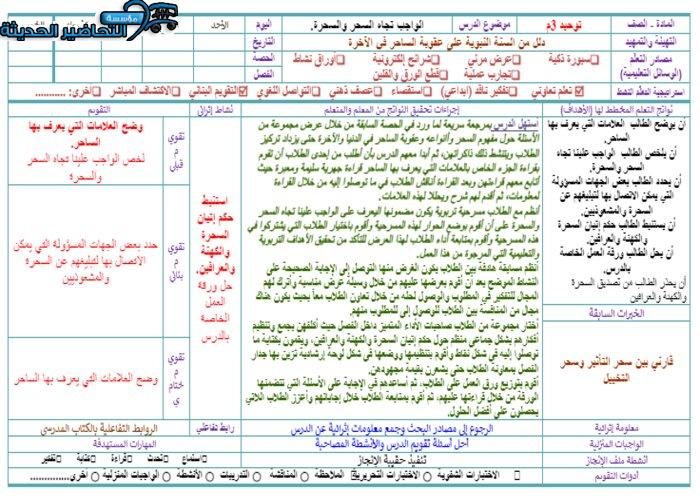 مؤسسة
التحاضير الحديثة
المادة - الصف
توحيد 3م
موضوع الدرس
الواجب تجاه السحر والسحرة.
اليوم
الأحد
التهيئة والتمهيد
دلل من السنة النبوية على عقوبة الساحر في الآخرة
التاريخ
مصادر التعلم
(الوسائل التعليمية)
سبورة ذكية
عرض مرئي
شرائح إلكترونية
أوراق نشاط
تجارب عملية
قطع الورق والفلين
الحصة
الفصل
استراتيجية التعلم النشط
تعلم تعاوني
تفكير ناقد (ابداعي)
استقصاء
عصف ذهني
التواصل اللغوي
التقويم البنائي
الاكتشاف المباشر
أخرى: ...........
نواتج التعلم المخطط لها (الأهداف)
إجراءات تحقيق النواتج من المعلم والمتعلم
نشاط إثرائي
التقويم
أن يوضح الطالب العلامات التي يعرف بها
الساحر.
أن يلخص الطالب الواجب علينا تجاه
السحر والسحرة.
أن يحدد الطالب بعض الجهات المسؤولة
التي يمكن الاتصال بها لتبليغهم عن
السحرة والمشعوذين.
أن يستنبط الطالب حكم إتيان السحرة
والكهنة والعرافين.
أن يحل الطالب ورقة العمل الخاصة
بالدرس.
أن يحذر الطالب من تصديق السحرة
والكهنة والعرافين
الخبرات السابقة
قارني بين سحر التأثير وسحر
التخييل
استهل الدرس بمراجعة سريعة لما ورد في الحصة السابقة من خلال عرض مجموعة من
الأسئلة حول مفهوم السحر وأنواعه وعقوبة الساحر في الدنيا والآخرة حتى يزداد تركيز
الطلاب وينتشط ذلك ذاكراتهن، ثم أبدأ معهم الدرس بأن أطلب من إحدى الطلاب أن تقوم
بقراءة الجزء الخاص بالعلامات التي يعرف بها الساحر قراءة جهرية سليمة ومعبرة حيث
أتابع معهم قراءتهن وبعد القراءة أناقش الطلاب في ما توصلوا إليه من خلال القراءة
لمعلومات، ثم أقدم لهم شرح ويحلا لهذه العلامات.
أنظم مع الطلاب مسرحية تربوية يكون مضمونها التعرف على الواجب علينا تجاه السحر
والسحرة على أن أقوم بوضع الحوار لهذه المسرحية وأقوم باختيار الطلاب التي يشتركوا في
هذه المسرحية وأقوم بمتابعة أداء الطلاب لهذا العرض للتأكد من تحقيق الأهداف التربوية
والتعليمية التي المرجوة من هذا العمل.
أنظم مسابقة هادفة بين الطلاب يكون الغرض منها التوصل إلى الإجابة الصحيحة على
النشاط الموضح بعد أن أقوم بعرضها عليهم من خلال وسيلة عرض مناسبة وأترك لهم
المجال للتفكير في المطلوب والوصول لحله من خلال تعاون الطلاب معاً بحيث يكون هناك
مجال من المنافسة بين الطلاب للوصول إلى المطلوب منهم.
أختار مجموعة من الطلاب صاحبات الأداء المتميز داخل الفصل حيث أكلفهن بجمع وتنظيم
أفكارهم بشكل جماعي منظم حول حكم إتيان السحرة والكهنة والعرافين، ويقمون بكتابة ما
توصلوا إليه في شكل نقاط وأقوم بتنظيمها ووضعها في شكل لوحة إرشادية تزين بها جدار
الفصل بمعاونة الطلاب حتى يشعرن بقيمة مجهودهن.
أقوم بتوزيع ورق العمل على الطلاب، ثم أساعدهم في الإجابة على الأسئلة التي تتضمنها
الورقة من خلال قراءتها عليهم، ثم أقوم بمتابعة الطلاب خلال إجاباتهم وأعزز الطلاب اللاتي
يحصلون على أفضل الحلول.
استنبط
حكم إتيان
السحرة
والكهنة
والعرافين.
حل ورقة
العمل
الخاصة
بالدرس
تقوي
م
قبلي
وضح العلامات التي يعرف بها
الساحر.
لخص الواجب علينا تجاه السحر
والسحرة
تقوي
م
بنائي
حدد بعض الجهات المسؤولة التي يمكن
الاتصال بها لتبليغهم عن السحرة
والمشعوذين
تقوي
م
ختام
ي
وضح العلامات التي يعرف بها الساحر
معلومة إثرائية
الرجوع إلى مصادر البحث وجمع معلومات إثرائية عن الدرس
رابط تفاعلي
الروابط التفاعلية بالكتاب المدرسي
الواجبات المنزلية
أحل أسئلة تقويم الدرس والأنشطة المصاحبة
المهارات المستهدفة
أنشطة ملف الإنجاز
تنفيذ حقيبة الإنجاز
استماع
تحدث
قراءة
كتابة
تفكير
أدوات التقويم
الاختبارات الشفوية
الاختبارات التحريرية
الملاحظة
المناقشة
التدريبات
الأنشطة
الواجبات المنزلية
أخرى...............